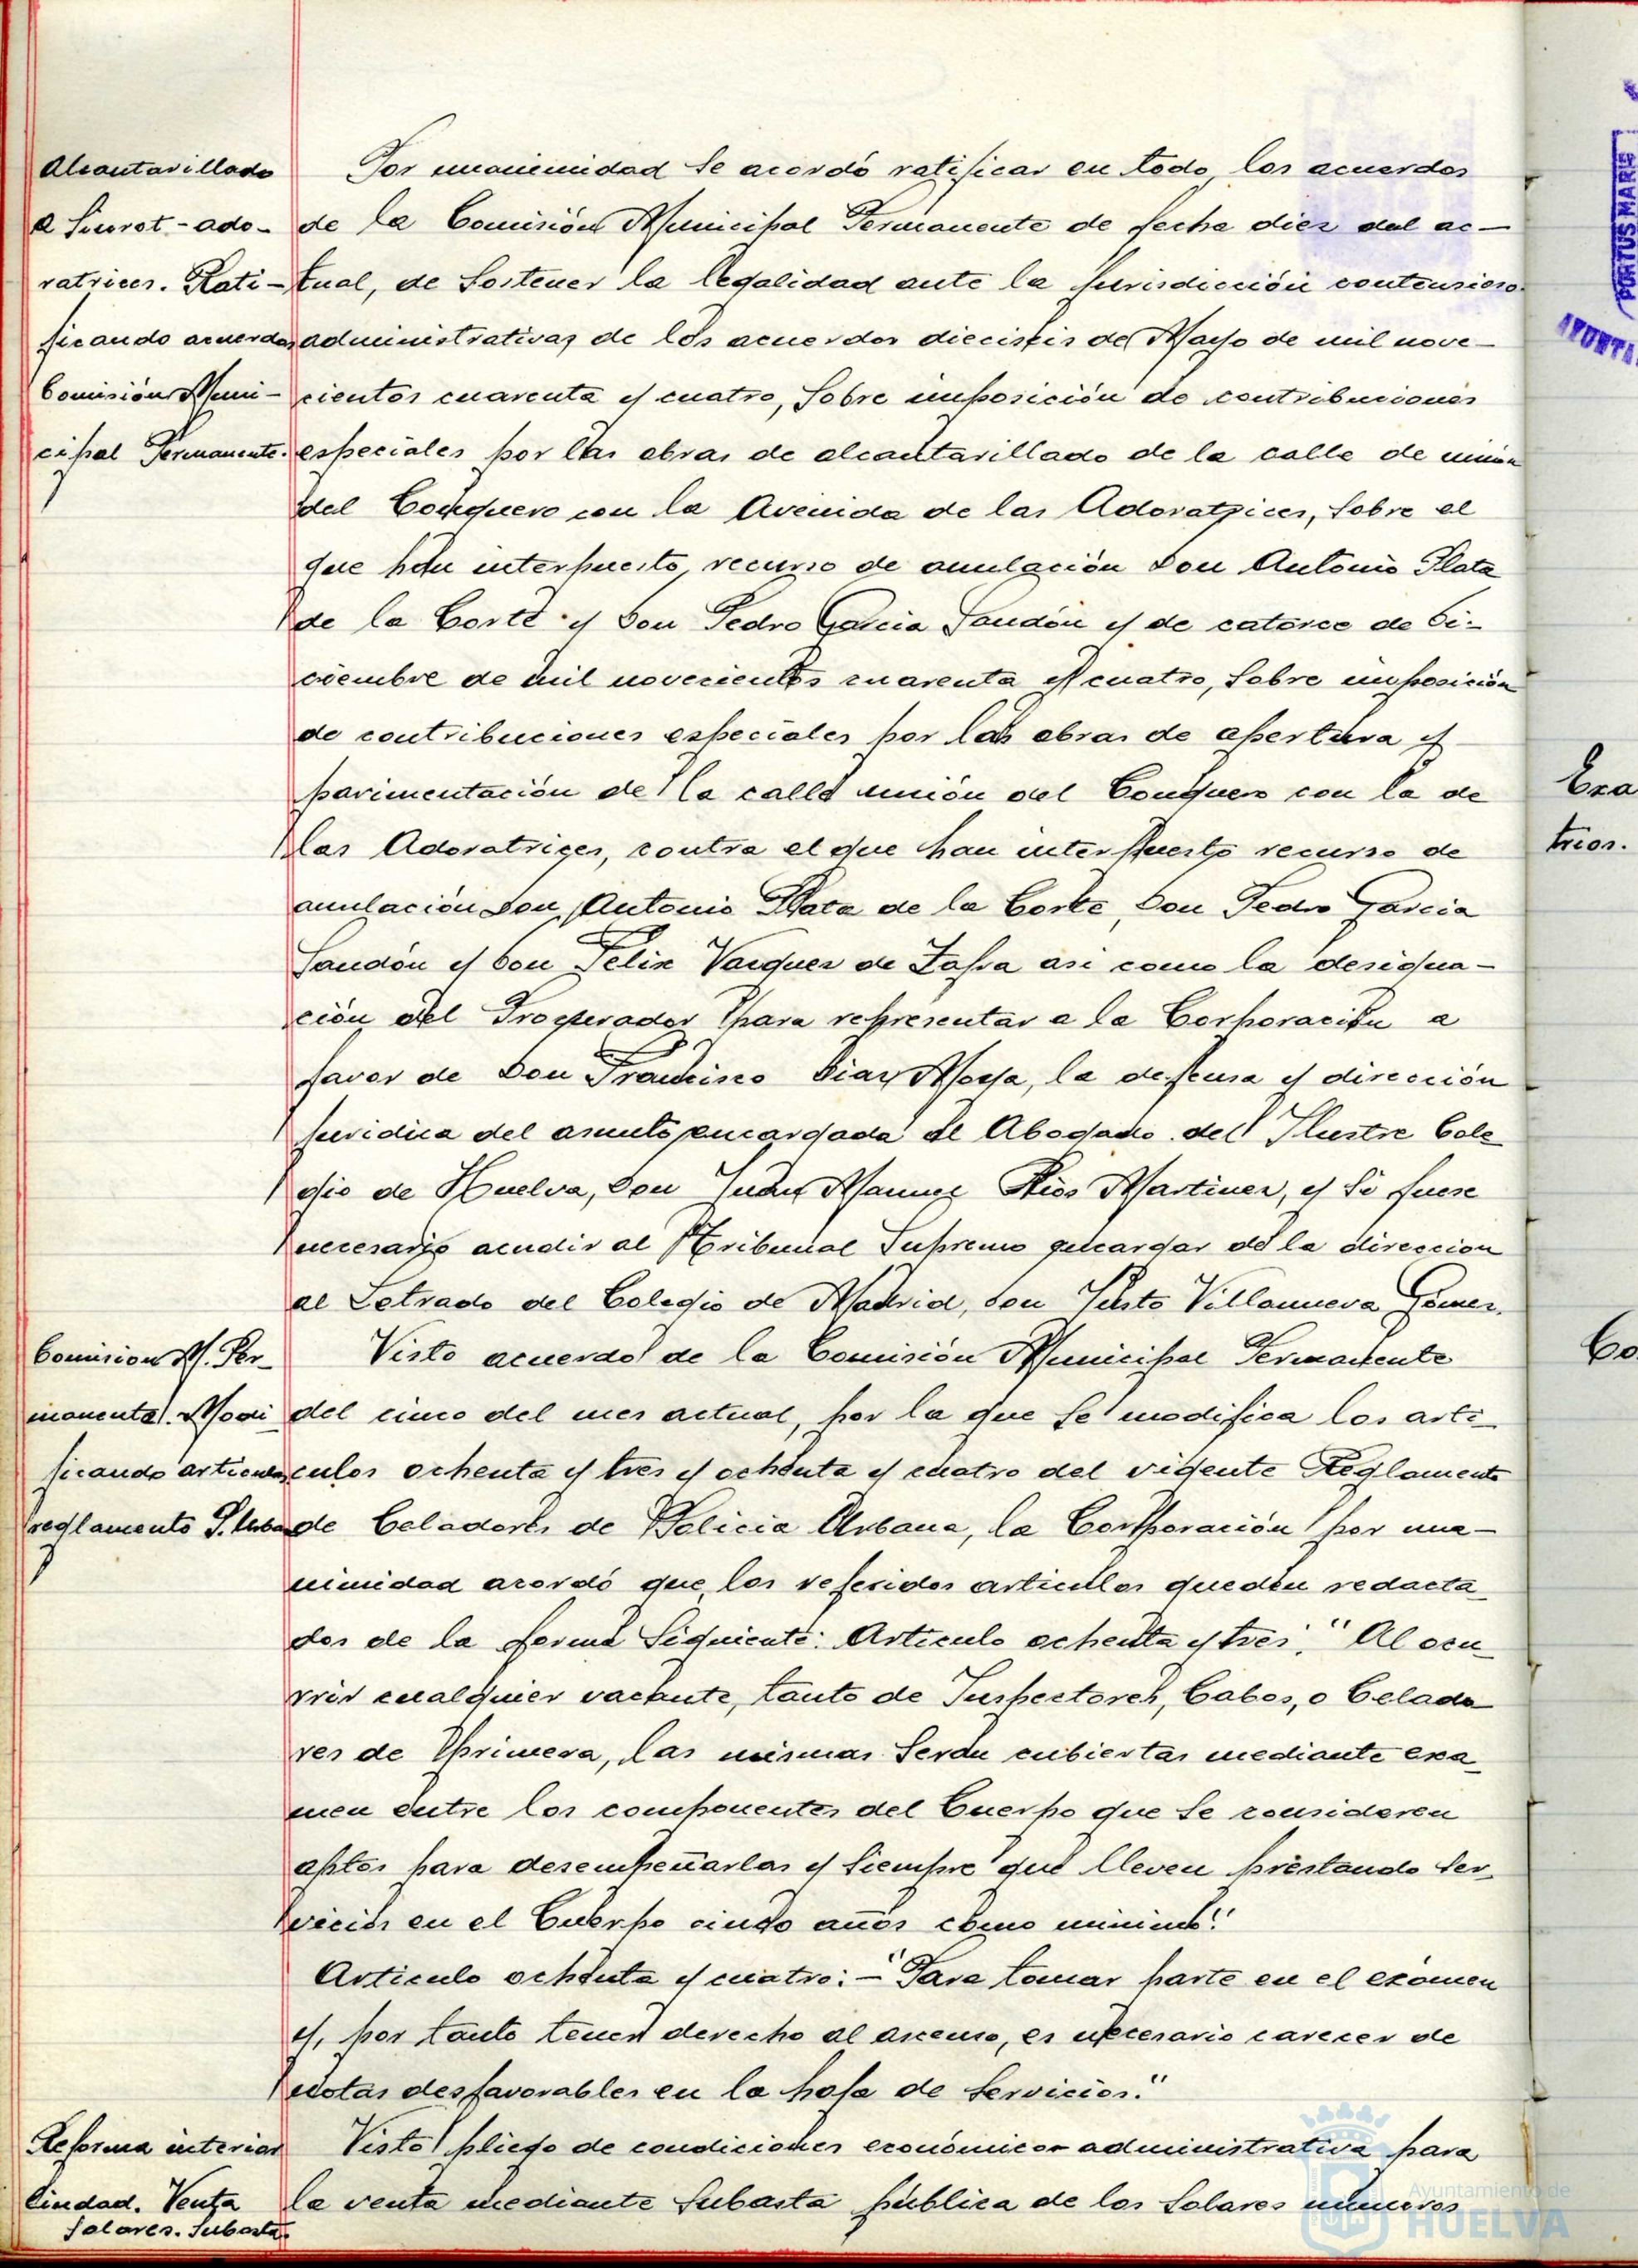 Alcantarillado
a Siurot-ado-
ratrices. Rati-
ficando acuerdos
Comisión Muni-
cipal Permanente.
Por unanimidad se acordó ratificar en todo, los acuerdos
de la Comisión Municipal Permanente de fecha diez del ac-
tual, de sostener la legalidad ante la jurisdicción contencioso
administrativas de los acuerdos dieciseis de Mayo de mil nove-
cientos cuarenta y cuatro, sobre imposición de contribuciones
especiales por las obras de alcantarillado de la calle de unión
del Conquero con la Avenida de las Adoratrices, sobre el
que han interpuesto, recurso de anulación Don Antonio Plata
de la Corte y Don Pedro Garcia Jandón y de catorce de Di-
ciembre de mil novecientos cuarenta y cuatro, sobre imposición
de contribuciones especiales por las obras de apertura y
pavimentación de la calle unión del Conquero con la de
las Adoratrices, contra el que han interpuesto recurso de
anulación Don Antonio Plata de la Corte, Don Pedro Garcia
Jandón y Don Felix Vazquez de Zafra asi como la designa-
ción del Procurador para representar a la Corporación a
favor de Don Francisco Diaz Moya, la defensa y dirección
juridica del asunto encargada al Abogado del Ilustre Cole
gio de Huelva, Don Juan Manuel Rios Martinez, y si fuese
necesario acudir al Tribunal Supremo encargar de la direccion
al Letrado del Colegio de Madrid, Don Justo Villanueva Gómez.
Comision M. Per-
manente. Modi
ficando articulos
reglamento P. Urba
Visto acuerdo de la Comisión Municipal Permanente
del cinco del mes actual, por la que se modifica los arti-
culos ochenta y tres y ochenta y cuatro del vigente Reglamento
de Celadores de Policia Urbana, la Corporación por una-
nimidad acordó que los referidos articulos queden redacta
dos de la forma siguiente: Articulo ochenta y tres: "Al ocu
rrir cualquier vacante, tanto de Inspectores, Cabos, o Celado
res de Primera, las mismas serán cubiertas mediante exa
men entre los componentes del Cuerpo que se consideren
aptos para desempeñarlas y siempre que lleven prestando ser
vicios en el Cuerpo cinco años como minimo."
Articulo ochenta y cuatro:- "Para tomar parte en el exámen
y, por tanto tener derecho al ascenso, es necesario carecer de
notas desfavorables en la hoja de servicios."
Reforma interior
Ciudad. Venta
solares. Subasta.
Visto pliego de condiciones económicor administrativa para
la venta mediante subasta pública de los solares números
PORTUS MARIS
AYUNTA
Exa
trios.
Co
Ayuntamiento de
HUELVA